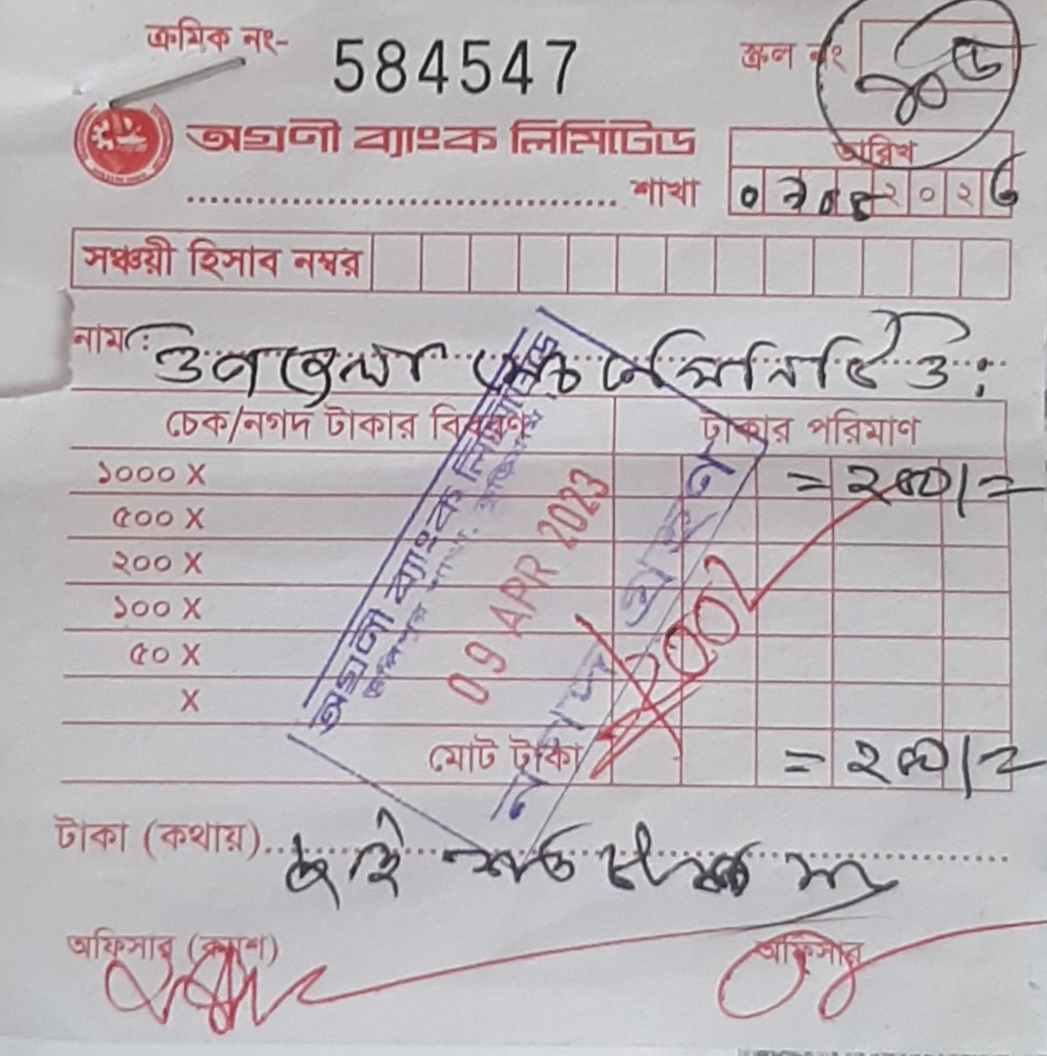 ক্রমিক নং- 584547 স্ক্রল নং
অগ্রণী ব্যাংক লিমিটেড
তারিখ
শাখা
২০২
সঞ্চয়ী হিসাব নম্বর
নাম:
চেক/নগদ টাকার বিবরণ টাকার পরিমাণ
১০০০ X = ২০০/=
৫০০ X
২০০ X
১০০ X
৫০ X
X
মোট টাকা = ২০০/=
টাকা (কথায়) দুই শত টাকা মাত্র
অফিসার (ক্যাশ) অফিসার
অগ্রণী ব্যাংক লিমিটেড
09 APR 2023
নগদ গ্রহণ
200/